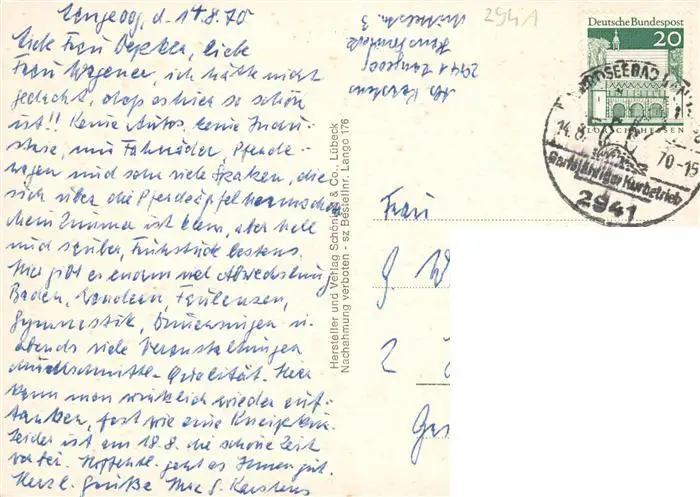 Langeoog, d. 14.8.70
Liebe Frau Depken, liebe
Frau Wagener, ich hätte nicht
gedacht, daß es hier so schön
ist!! Keine Autos, keine Indu-
strie, nur Fahrräder, Pferde-
wagen und sehr viele Spatzen, die
sich über die Pferdeäpfel hermachen
Mein Zimmer ist klein, aber hell
und sauber, Frühstück bestens.
Hier gibt es enorm viel Abwechslung
Baden, Wandern, Faulenzen,
Gymnastik, u.
abends viele Veranstaltungen
Durchschnitts-Qualität. Hier
kann man wirklich wieder auf-
tanken, fast wie eine Kneippkur.
Leider ist am 18.8. die schöne Zeit
vorbei. Hoffentl. geht es Ihnen gut.
Herzl. Grüße Ihre G. Karstens
Abs. Karstens
2941 Langeoog
3
Hersteller und Verlag Schöning & Co., Lübeck
Nachahmung verboten - sz Bestellnr. Lango 176
2941
Deutsche Bundespost
20
LORSCH/HESSEN
NORDSEEBAD
14.8. 70-15
Ganzjähriger Kurbetrieb
2941
Frau
G. W
2